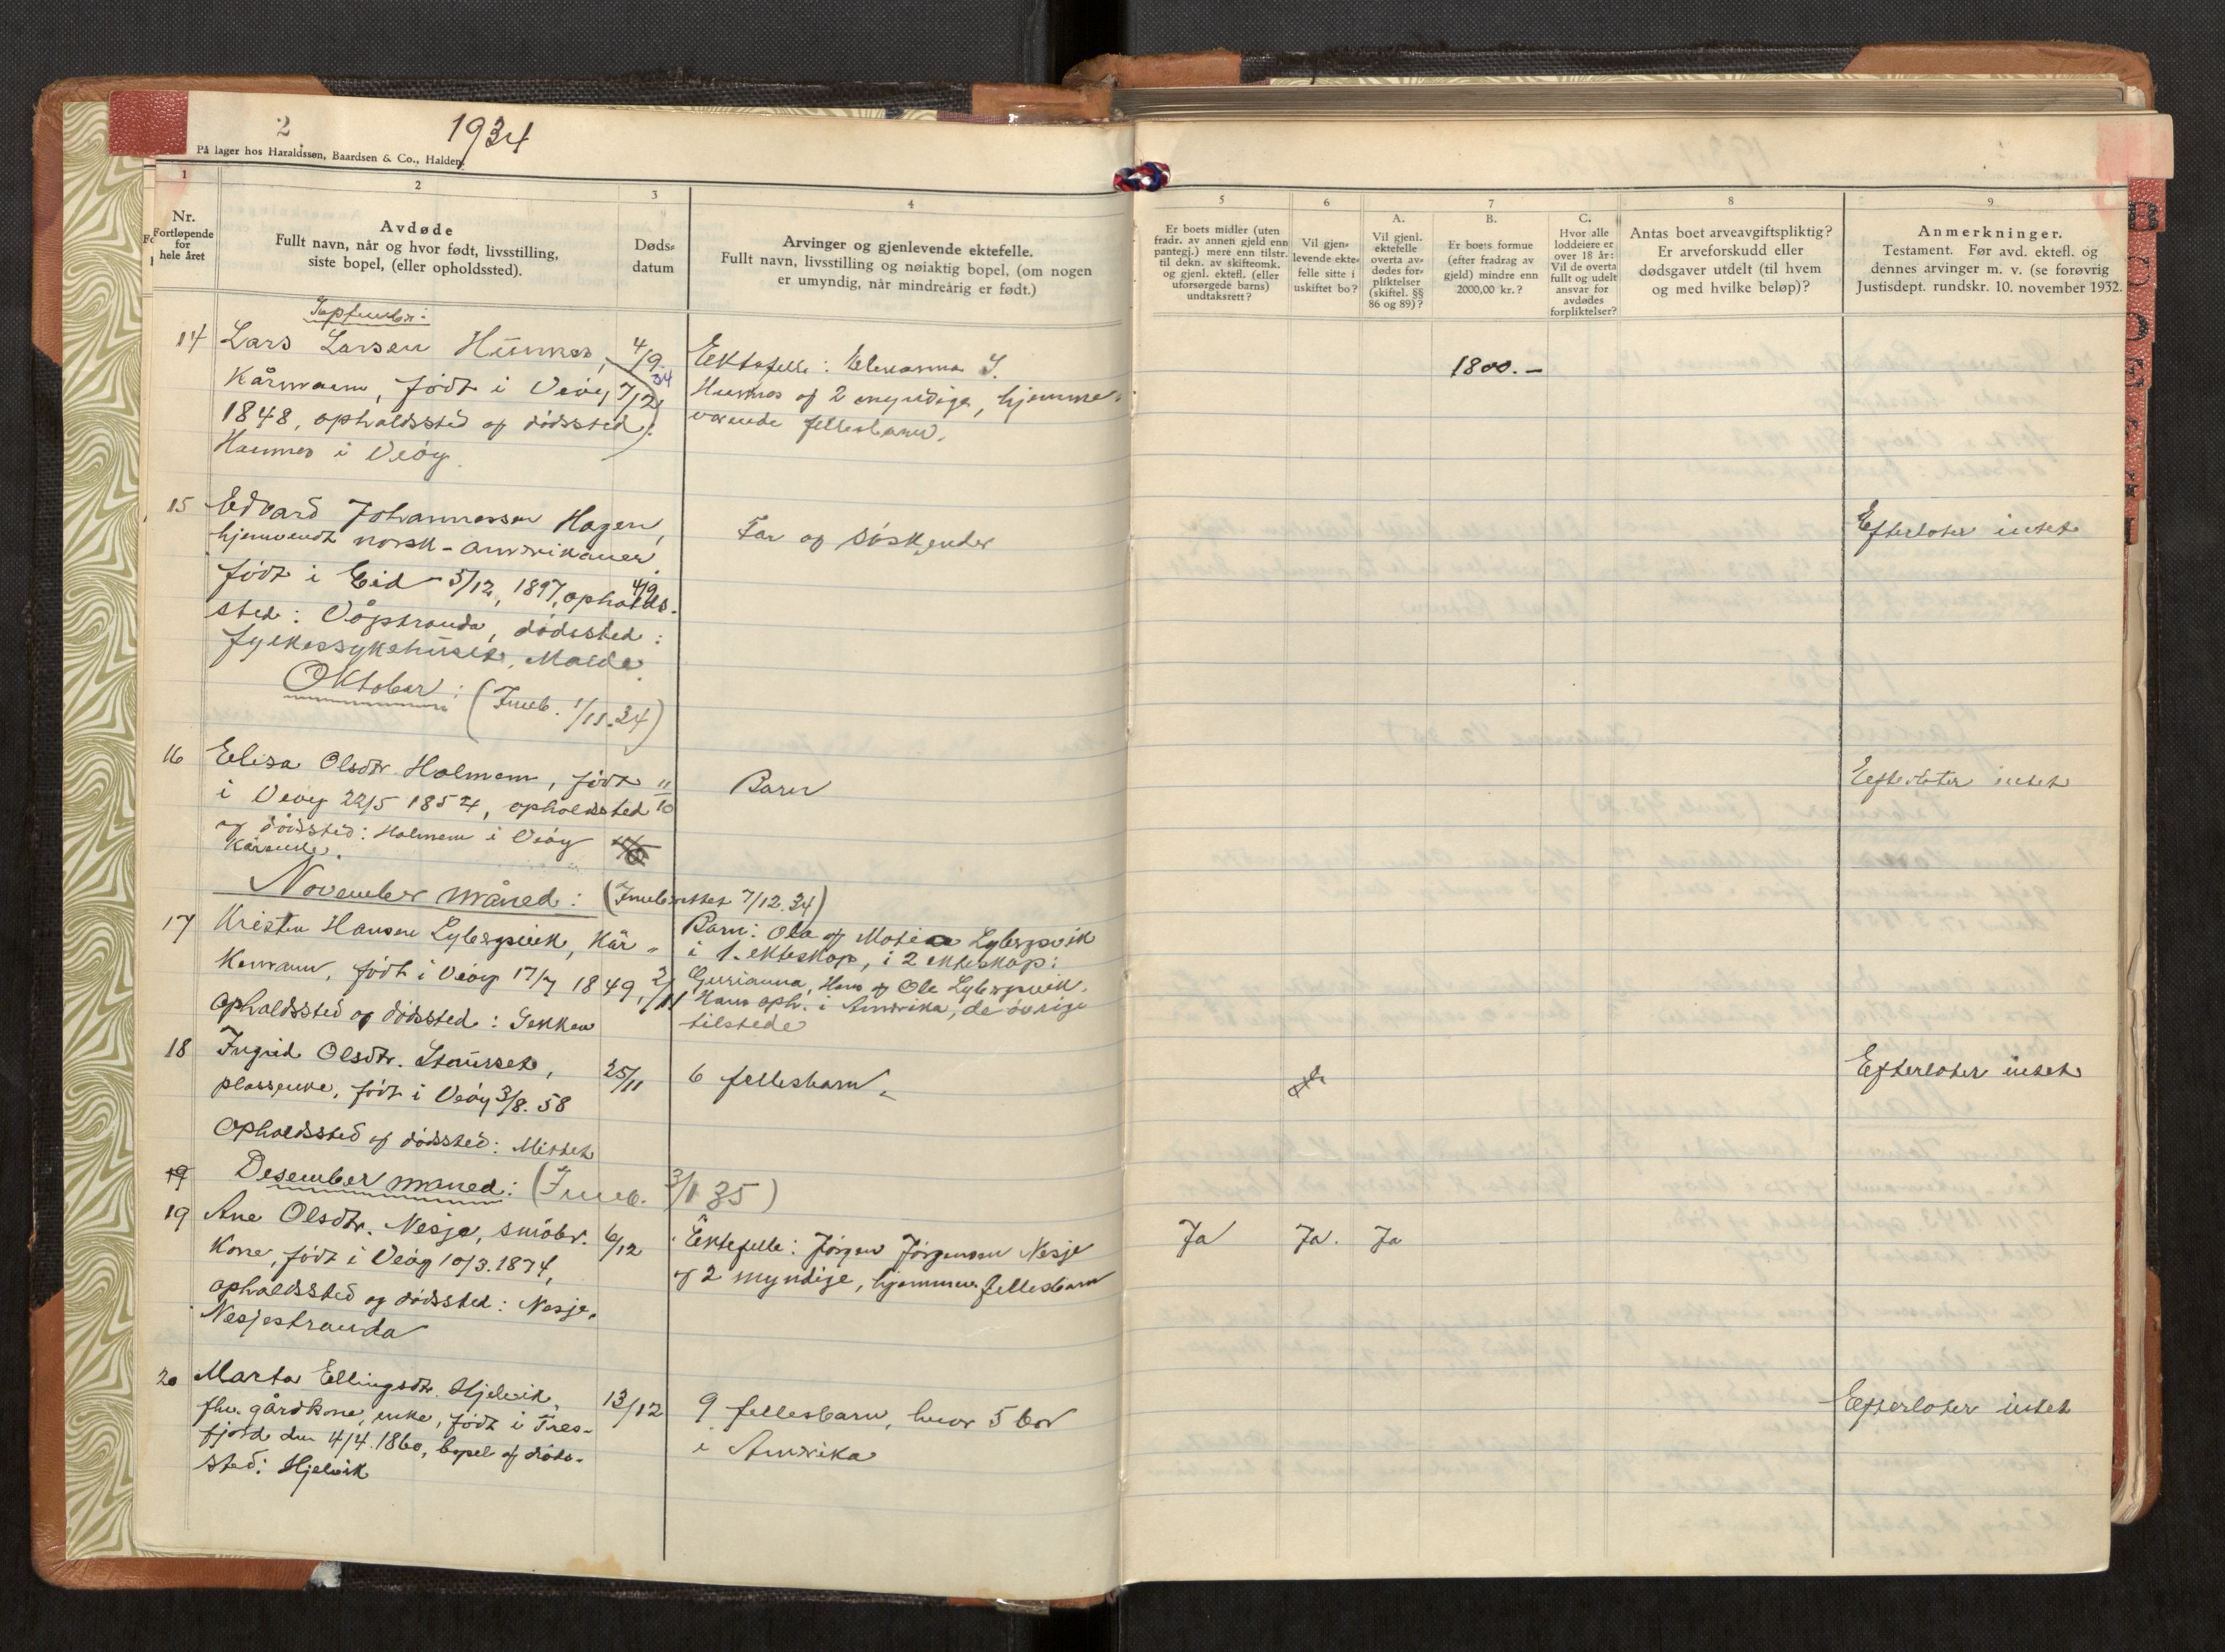 2
1934
På lager hos Haraldssøn, Baardsen & Co., Halden.
1
Nr.
Fortløpende
for
hele året
2
Avdøde
Fullt navn, når og hvor født, livsstilling,
siste bopel, (eller opholdssted).
3
Døds-
datum
4
Arvinger og gjenlevende ektefelle.
Fullt navn, livsstilling og nøiaktig bopel, (om nogen
er umyndig, når mindreårig er født.)
5
Er boets midler (uten
fradr. av annen gjeld enn
pantegj.) mere enn tilstr.
til dekn. av skifteomk.
og gjenl. ektefl. (eller
uforsørgede barns)
undtaksrett?
6
Vil gjen-
levende ekte-
felle sitte i
uskiftet bo?
7
A.
Vil gjenl.
ektefelle
overta av-
dødes for-
pliktelser
(skiftel. §§
86 og 89)?
B.
Er boets formue
(efter fradrag av
gjeld) mindre enn
2000,00 kr.?
C.
Hvor alle
loddeiere er
over 18 år:
Vil de overta
fullt og udelt
ansvar for
avdødes
forpliktelser?
8
Antas boet arveavgiftspliktig?
Er arveforskudd eller
dødsgaver utdelt (til hvem
og med hvilke beløp)?
9
Anmerkninger.
Testament. Før avd. ektefl. og
dennes arvinger m. v. (se forøvrig
Justisdept. rundskr. 10. november 1932.
September:
14 Lars Larsen Hunnes, 4/9
34
Kårmann, født i Veøy 7/12
1848, opholdssted og dødssted:
Hunnes i Veøy
Ektefelle:
Hunnes og 2 myndige, hjemme-
værende fellesbarn.
1800.-
15 Edvard Johannessen Hagen,
hjemvendt norsk-amerikaner
født i Eid 5/12, 1897, opholds- 4/9
sted: Vågstranda, dødssted:
fylkessykehuset, Molde.
Far og søskender
Efterlater intet
Oktober: (Innb. 1/11.34)
16 Elisa Olsdtr Holmem, født
i Veøy 22/5 1854, opholdssted 11/10
og dødssted: Holmem i Veøy
Kårenke.
Barn
Efterlater intet
November måned: (Innberettet 7/12.34)
17 Kristen Hansen Lybergsvik, Kår-
Kemann, født i Veøy 17/7 1849, 2/11
Opholdssted og dødssted: Sekken
Barn: Ola og Lybergsvik
i 1. ekteskap, i 2 ekteskap:
Gurianna, Hans og Ole Lybergsvik.
Hans oph. i Amerika, de øvrige
tilstede
18 Ingrid Olsdtr.
plassenke, født i Veøy 3/8. 58 25/11
Opholdssted og dødssted: Mittet
6 fellesbarn.
Efterlater intet
19 Desember måned: (Innb. 3/1 35)
19 Ane Olsdtr. Nesje, småbr. 6/12
Kone, født i Veøy 10/3. 1874,
opholdssted og dødssted: Nesje,
Nesjestranda
Ektefelle: Jørgen Jørgensen Nesje
og 2 myndige, hjemmev. fellesbarn
Ja Ja. Ja
20 Marta Ellingsdtr. Hjelvik, 13/12
fhv. gårdkone, enke, født i Tres-
fjord den 4/4. 1860, bopel og døds-
sted: Hjelvik
9 fellesbarn, hvor 5 bor
i Amerika
Efterlater intet